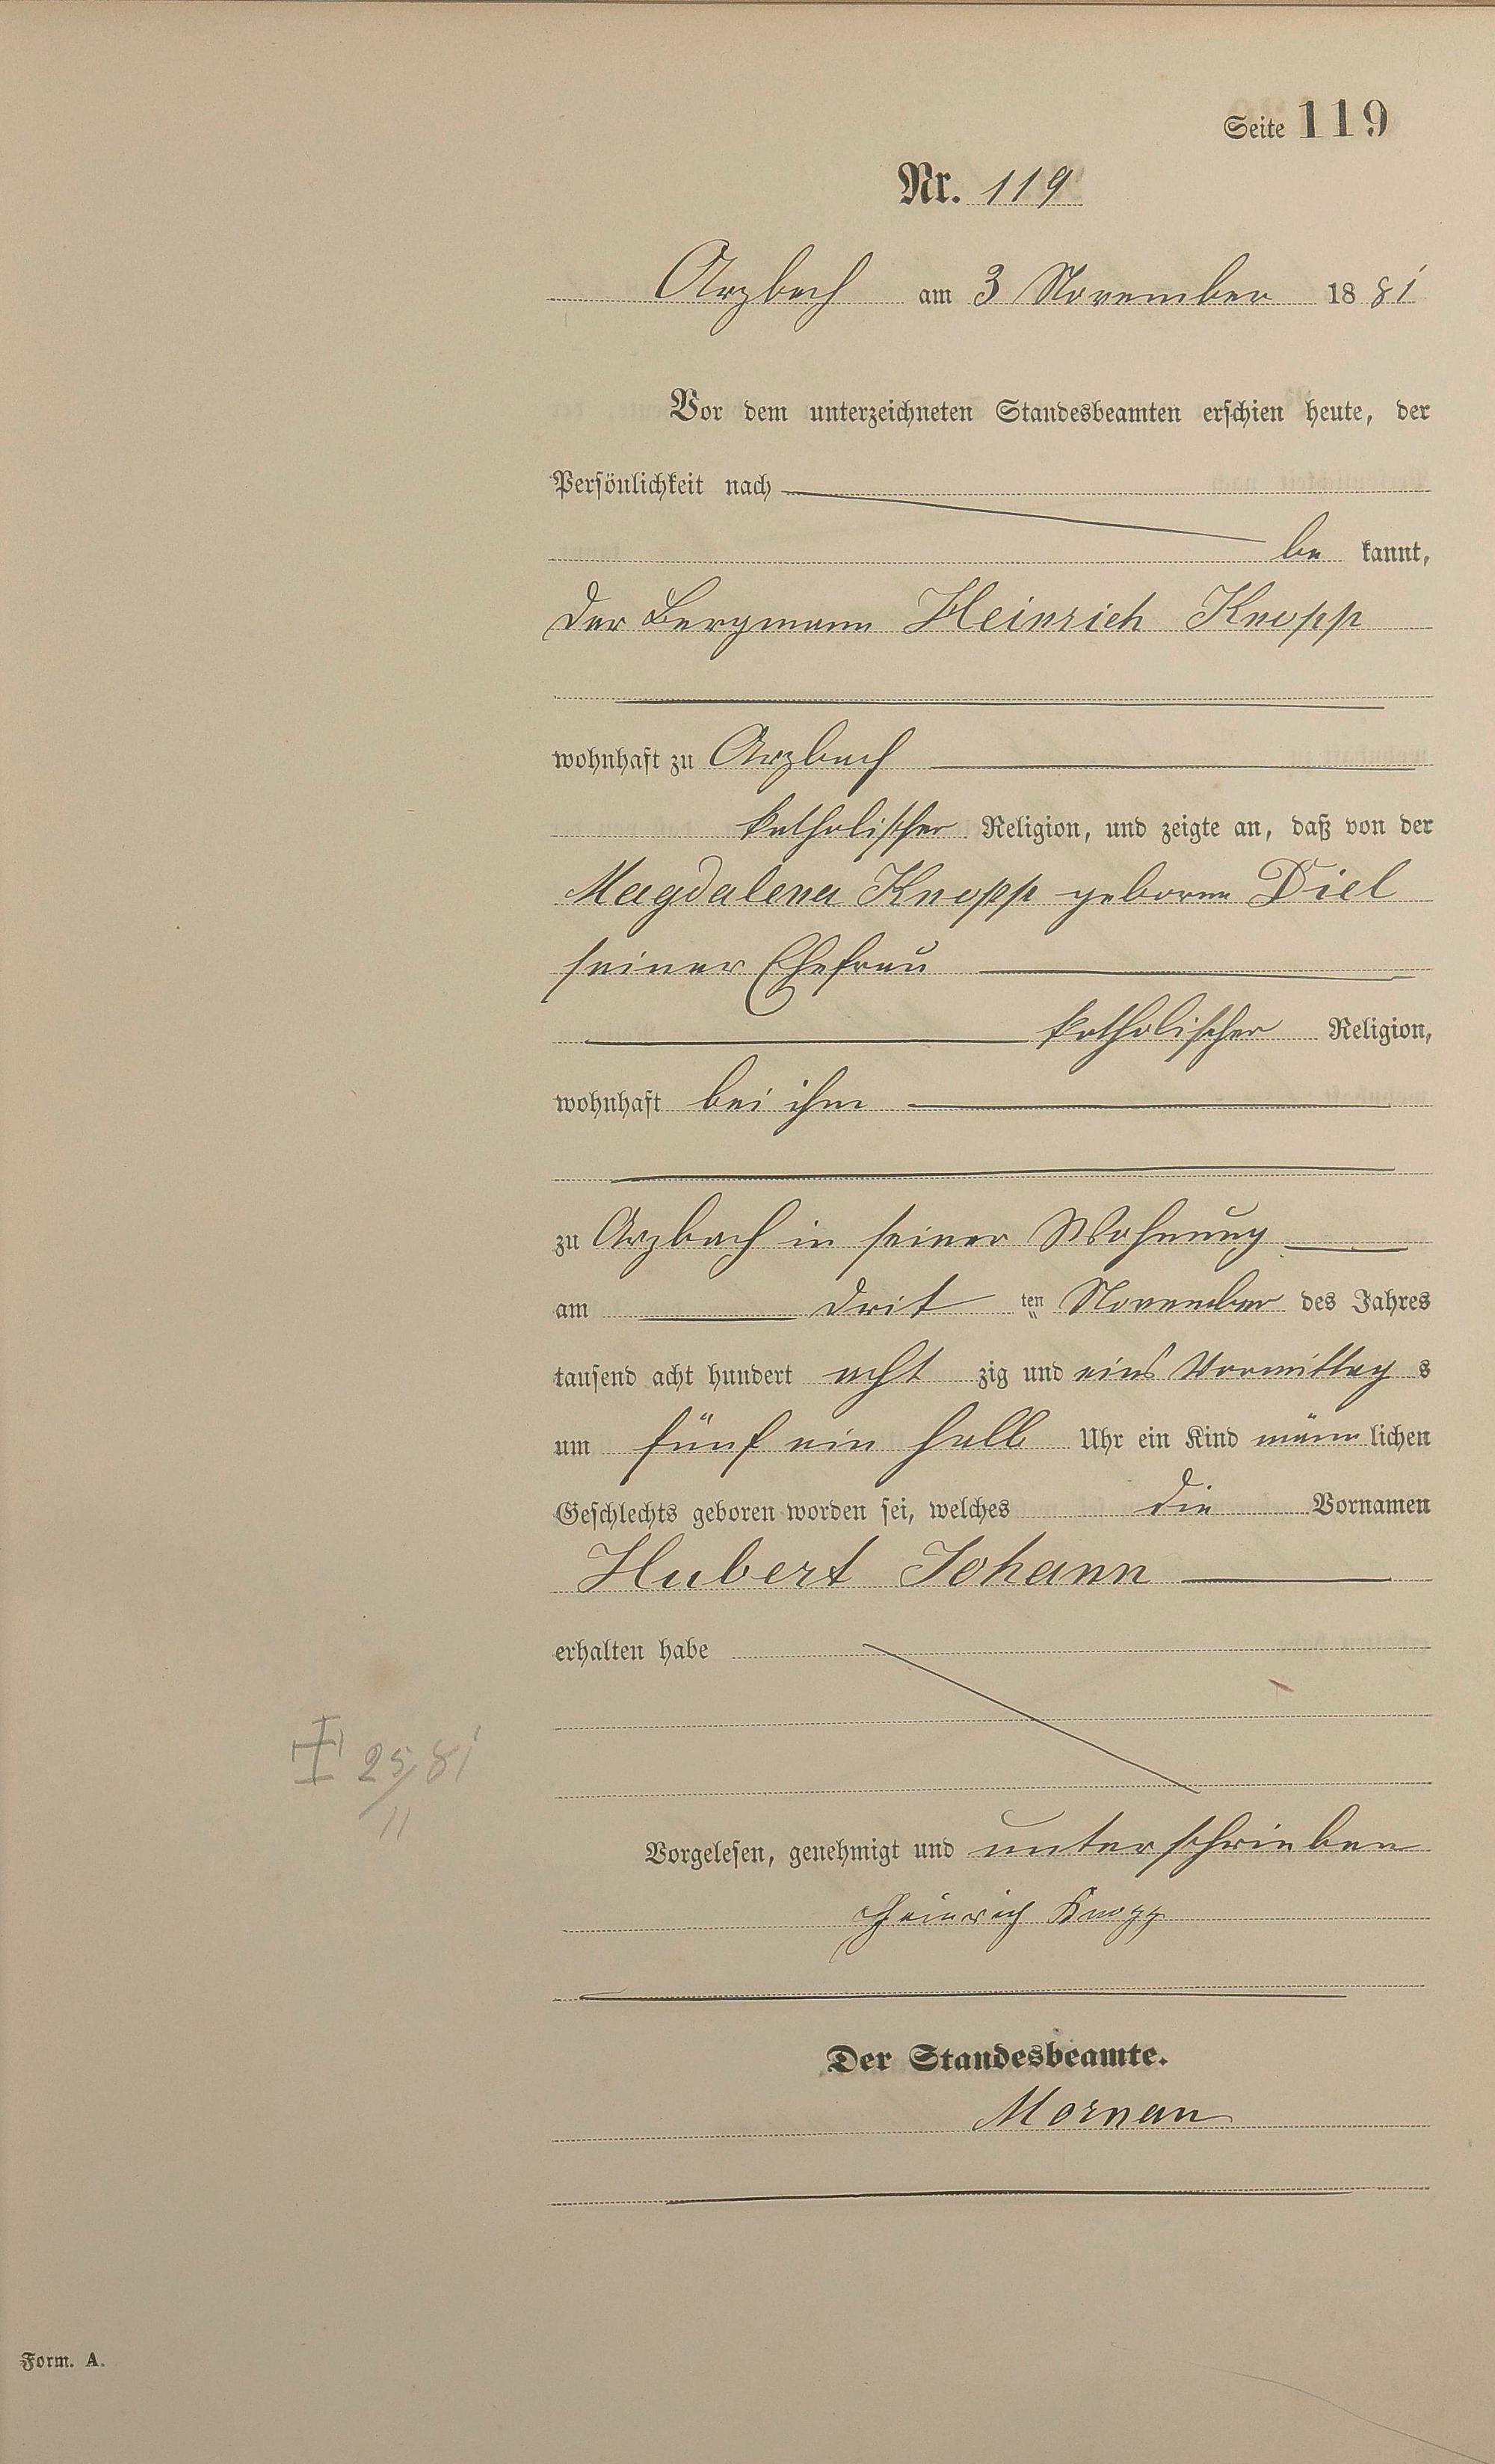 Seite 119
Nr. 119
Arzbach am 3 November 1881
Vor dem unterzeichneten Standesbeamten erschien heute, der
Persönlichkeit nach
be kannt,
der Bergmann Heinrich Knopp
wohnhaft zu Arzbach
katholischer Religion, und zeigte an, daß von der
Magdalena Knopp geborne Diel
seiner Ehefrau
katholischer Religion,
wohnhaft bei ihm
zu Arzbach in seiner Wohnung
am drit ten November des Jahres
tausend acht hundert acht zig und eins Vormittag s
um fünf ein halb Uhr ein Kind männ lichen
Geschlechts geboren worden sei, welches die Vornamen
Hubert Johann
erhalten habe
25/11 81
Vorgelesen, genehmigt und unterschrieben
Heinrich Knopp
Der Standesbeamte.
Mornau
Form. A.